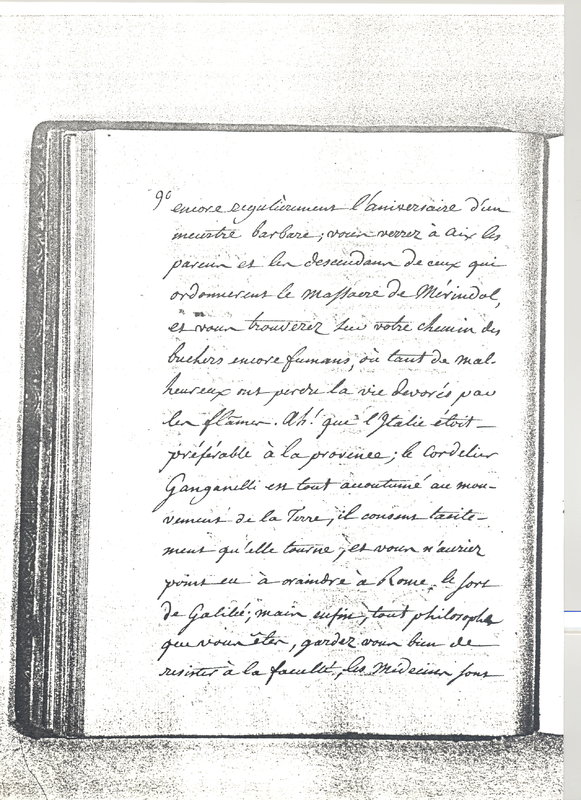 90
encore regulièrement l'aniversaire d'un
meurtre barbare; vous verrez à Aix les
parens et les descendans de ceux qui
ordonnerent le massacre de Mérindol,
et vous trouverez sur votre chemin des
buchers encore fumans, où tant de mal-
heureux ont perdu la vie devorés par
les flâmes. Ah! que l'Italie étoit
préférable à la provence; le Cordelier
Ganganelli est tout acoutumé au mou-
vement de la Terre, il consent tasite-
ment qu'elle tourne, et vous n'auriez
point eu à craindre à Rome le sort
de Galilée; mais enfin, tout philosophe
que vous êtes, gardez vous bien de
resister à la faculté, les Médecins sont